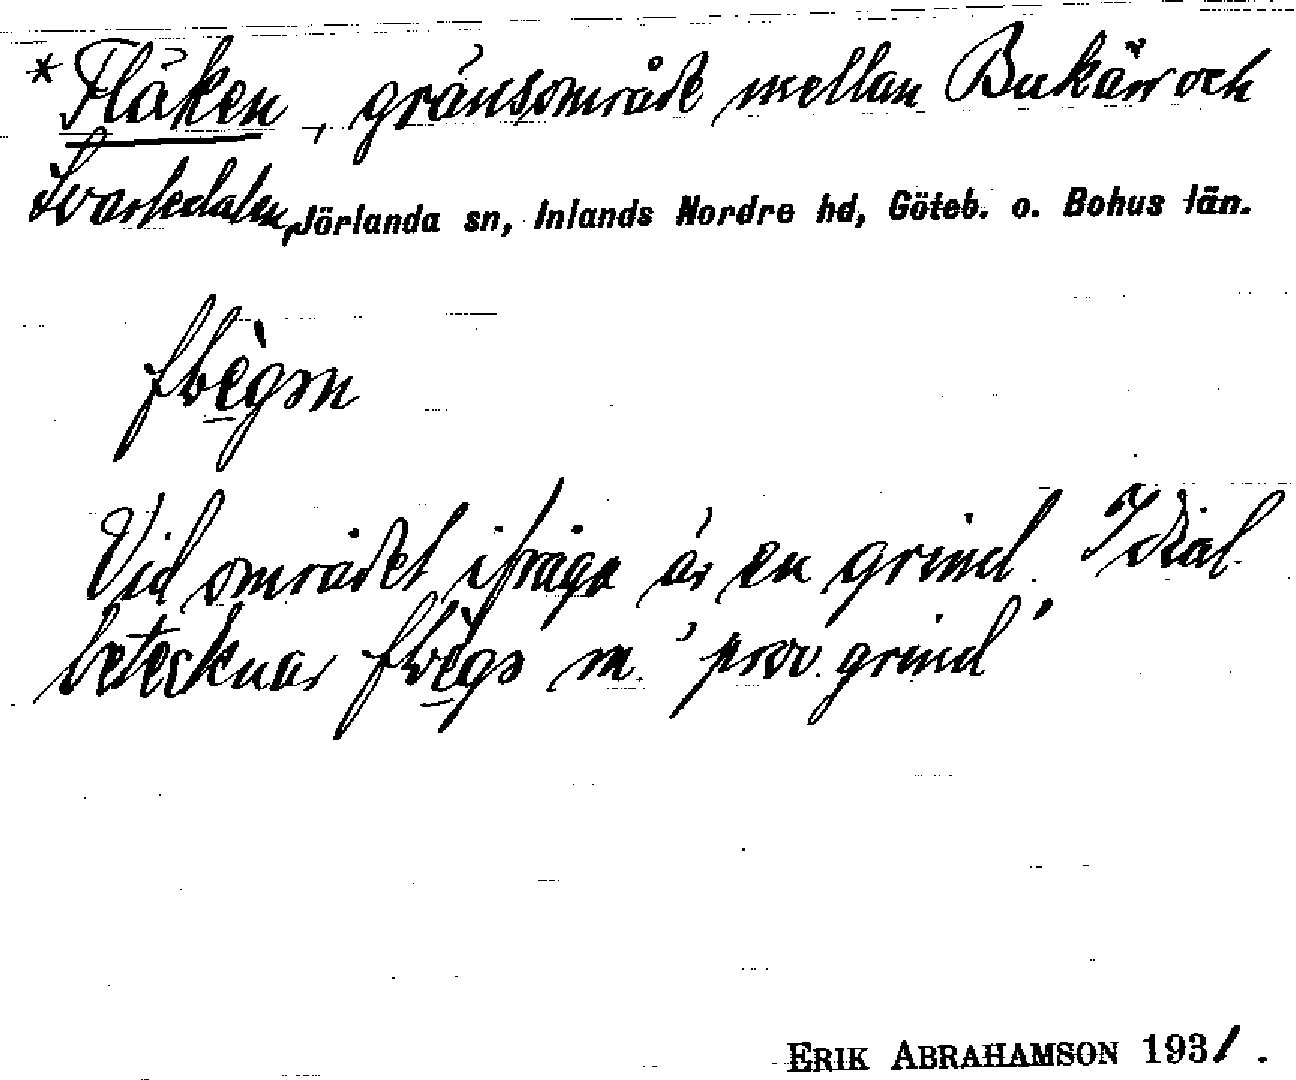 *Fläken, gränsområde mellan Bukärr och
Svartedalen, Jörlanda sn, Inlands Nordre hd, Göteb. o. Bohus län.
Vid området ifråga är en grind. I dial.
betecknar m. 'prov. grind'
ERIK ABRAHAMSON 1931.